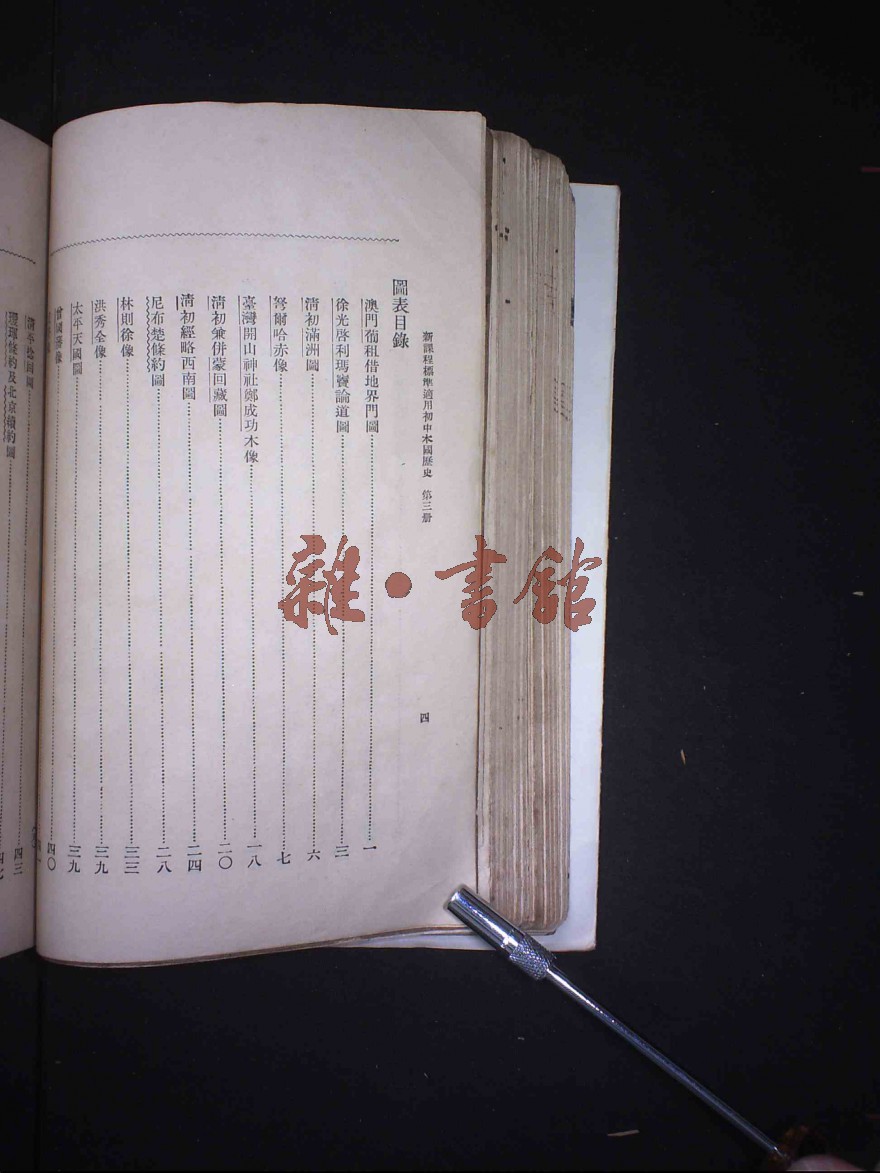 新課程標準適用初中本國歷史　第三册
四
圖表目錄
澳門葡租借地界門圖⋯⋯一
徐光啓利瑪竇論道圖⋯⋯三
清初滿洲圖⋯⋯六
弩爾哈赤像⋯⋯七
臺灣開山神社鄭成功木像⋯⋯一八
清初兼併蒙回藏圖⋯⋯二〇
清初經略西南圖⋯⋯二四
尼布楚條約圖⋯⋯二八
林則徐像⋯⋯三三
洪秀全像⋯⋯三九
太平天國圖⋯⋯三九
曾國藩像⋯⋯四〇
清平捻回圖⋯⋯四三
璦琿條約及北京續約圖⋯⋯四七
雜·書館